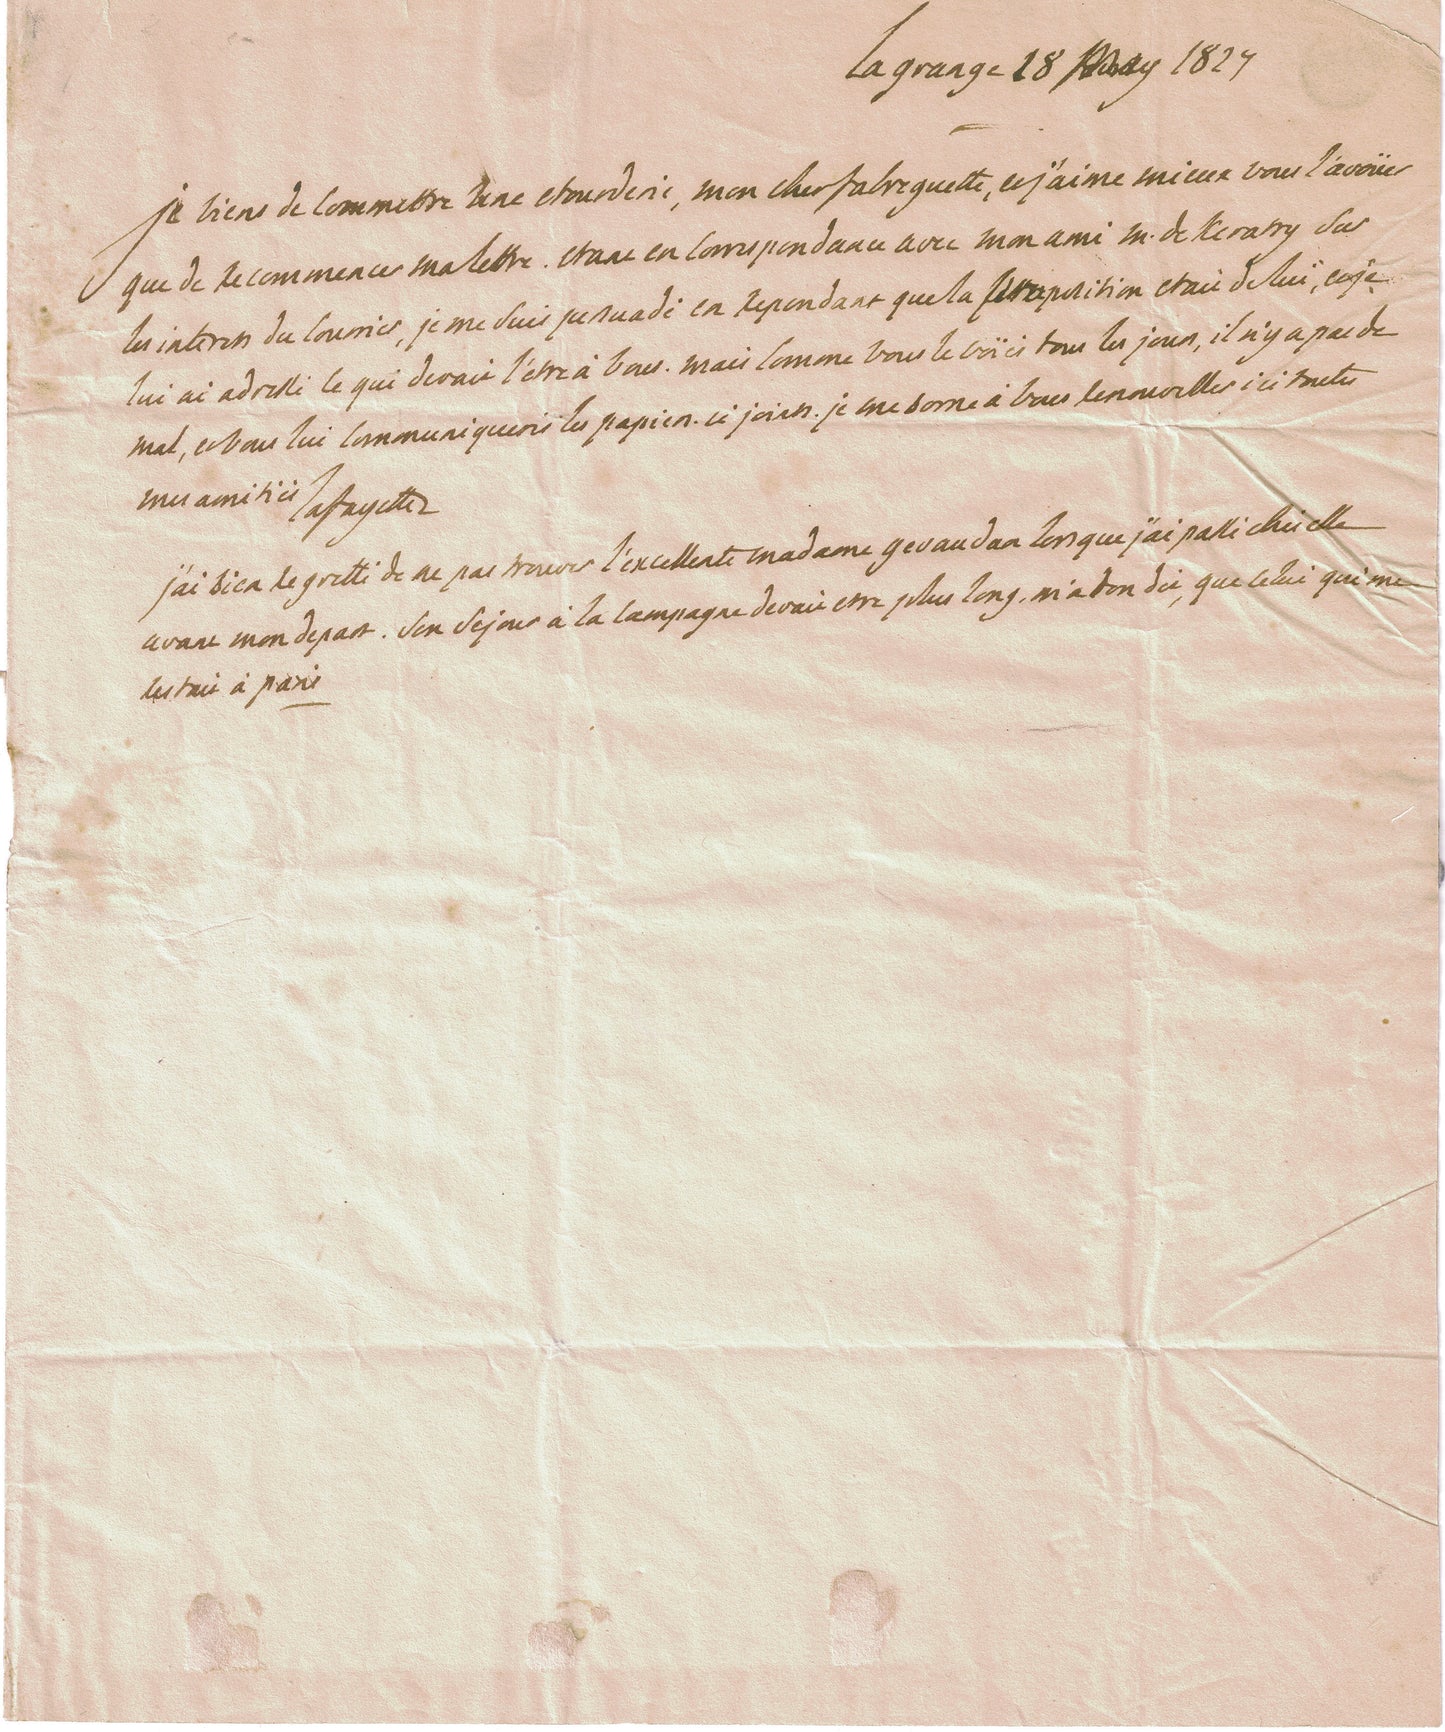 la grange 28 May 1827
je viens de commettre une etourderie, mon cher fabreguette, et j'aime mieux vous l'avoüer
que de recommencer ma lettre. etant en correspondance avec mon ami m. de Keratry sur
les interets du courrier, je me suis persuadé en repondant que la proposition etait de lui, et je
lui ai adressé ce qui devait l'etre à vous. mais comme vous le voïés tous les jours, il n'y a pas de
mal, et vous lui communiquerés les papiers ci joints. je me borne à vous renouveller ici toutes
mes amitiés lafayette
j'ai bien regretté de ne pas trouver l'excellente madame gevaudan lorsque j'ai passé chés elle
avant mon depart. son séjour à la campagne devait etre plus long, m'a t'on dit, que celui qui me
restait à paris